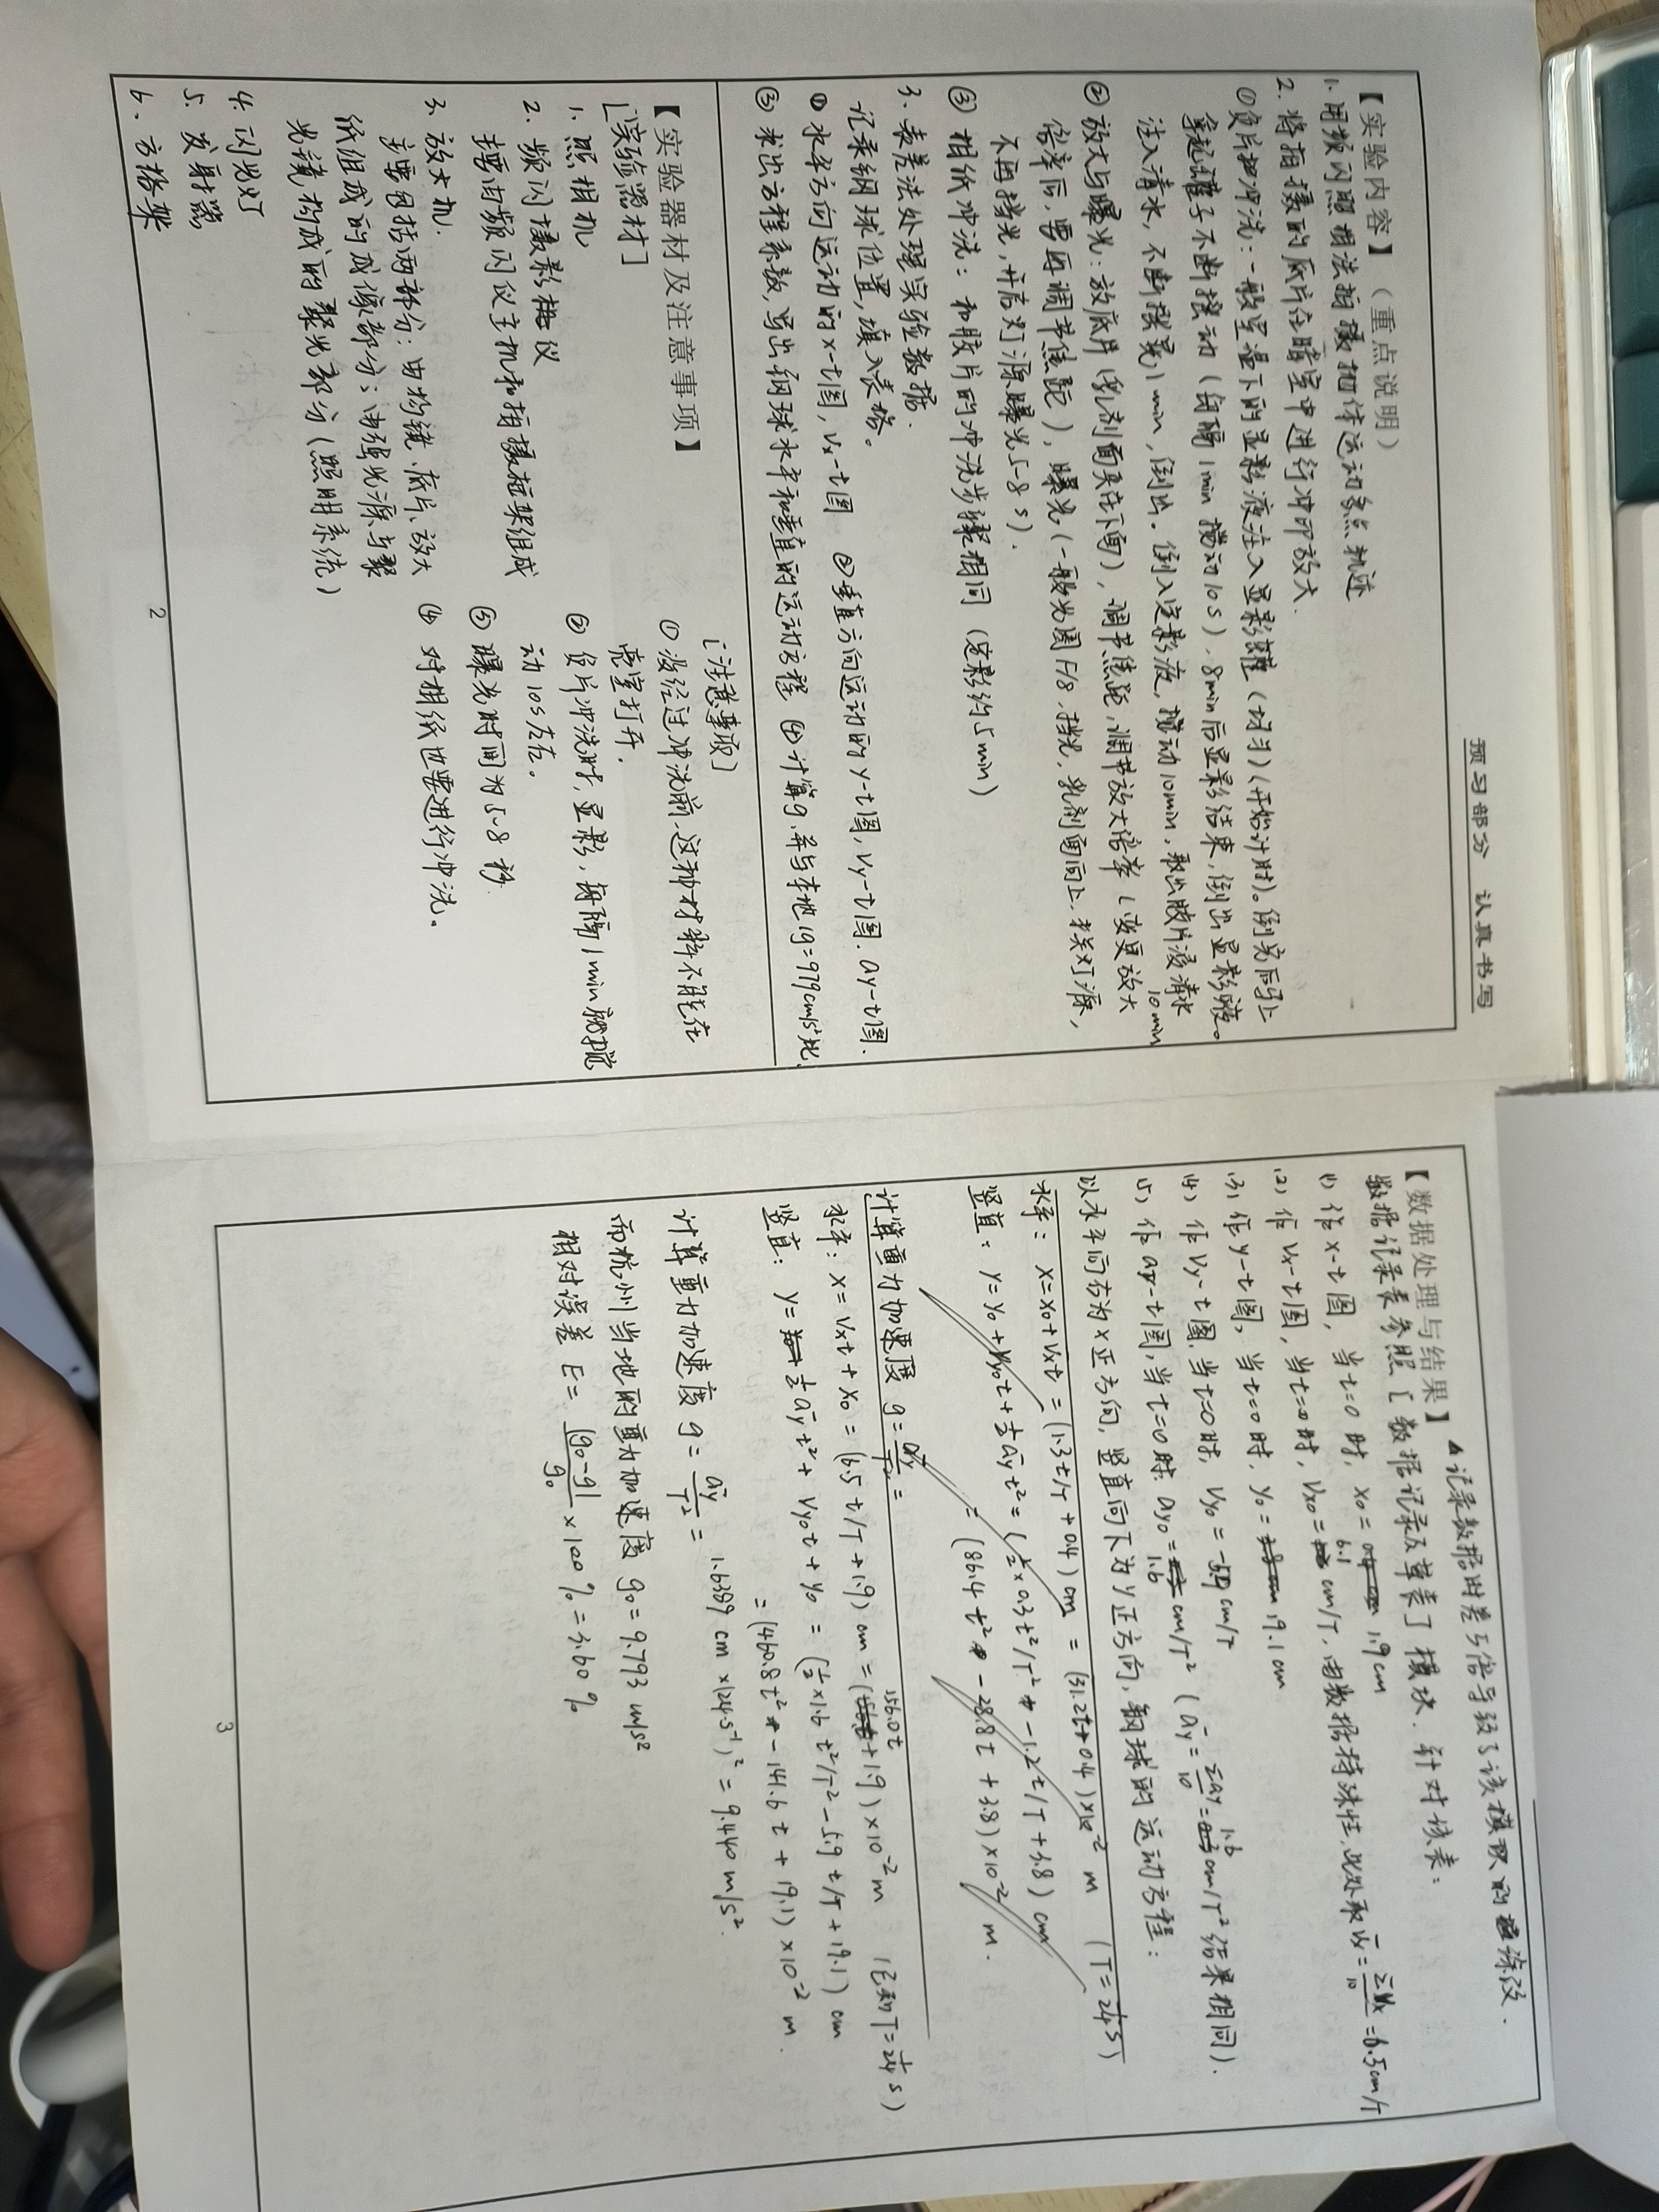 预习部分 认真书写
【实验内容】（重点说明）
1. 用频闪照相法拍摄抛体运动多点轨迹
2. 将拍摄的底片在暗室中进行冲印放大.
①负片冲洗：一般室温下的显影液注入显影罐（均匀）(开始计时)。倒完后马上
拿起罐子不断摇动（每隔1min 搅动10s），8min后显影结束，倒出显影液。
注入清水，不断摇晃1min，倒出. 倒入定影液，搅动10min，取出胶片浸清水
10min
②放大与曝光：放底片（乳剂面夹在下面），调节焦距，调节放大倍率（变更放大
倍率后，要再调节焦距），曝光（一般光圈F/8，挡光，乳剂面向上，打开灯源，
不再挡光，开启灯源曝光5-8s）.
③ 相纸冲洗：和胶片的冲洗步骤相同（定影约5min）
3. 表差法处理实验数据.
记录钢球位置，填入表格。
① 水平方向运动的x-t图，Vx-t图 ②垂直方向运动的y-t图，Vy-t图. ay-t图.
③ 求出方程系数，写出钢球水平和垂直的运动方程 ④计算g，并与本地g=979cm/s²比.
【实验器材及注意事项】
[实验器材]
1. 照相机
2. 频闪摄影仪
主要由频闪仪主机和拍摄框架组成
3. 放大机.
主要包括两部分：由物镜、底片、放大
纸组成的成像部分；由强光源与聚
光镜构成的聚光部分（照明系统）
4. 闪光灯
5. 发射器
6. 方格架
[注意事项]
① 没经过冲洗前，这种材料不能在
亮室打开.
② 负片冲洗时，显影，每隔1min就搅
动10s左右。
③ 曝光时间为5~8秒.
④ 对相纸也要进行冲洗。
2
【数据处理与结果】▲记录数据时差了倍导致了该模块的涂改.
数据记录表参照［数据记录及草表］模块. 针对该表：
(1) 作x-t图，当t=0时，x0= 1.9cm
(2) 作Vx-t图，当t=0时，Vx0= 6.1 cm/T. 由数据特殊性，此处取V̄x=ΣVx/10=6.5cm/T
(3) 作y-t图，当t=0时，y0= 19.1cm
(4) 作Vy-t图，当t=0时，Vy0=-5.9 cm/T
(5) 作ay-t图，当t=0时，ay0= 1.6 cm/T² (āy=Σay/10=1.6 cm/T²结果相同).
以水平向右为x正方向，竖直向下为y正方向，钢球的运动方程：
水平：x=x0+Vxt=(1.3t/T+0.4)cm=(31.2t+0.4)×10⁻² m (T=1/24 s)
竖直：y=y0+Vy0t+½āyt²=(½×0.3t²/T²-1.2t/T+3.8)cm
=(86.4t²-28.8t+3.8)×10⁻² m.
计算重力加速度 g=āy/T²=
水平：x=Vxt+x0=(6.5t/T+1.9)cm=(156.0t+1.9)×10⁻² m (已知T=1/24 s)
竖直：y=½āyt²+Vy0t+y0=(½×1.6t²/T²-5.9t/T+19.1)cm
=(460.8t²-141.6t+19.1)×10⁻² m.
计算重力加速度 g=āy/T²=1.6389cm×(24s⁻¹)²=9.440m/s².
而杭州当地的重力加速度 g0=9.793 m/s²
相对误差 E=|g0-g|/g0×100%=3.60%
3